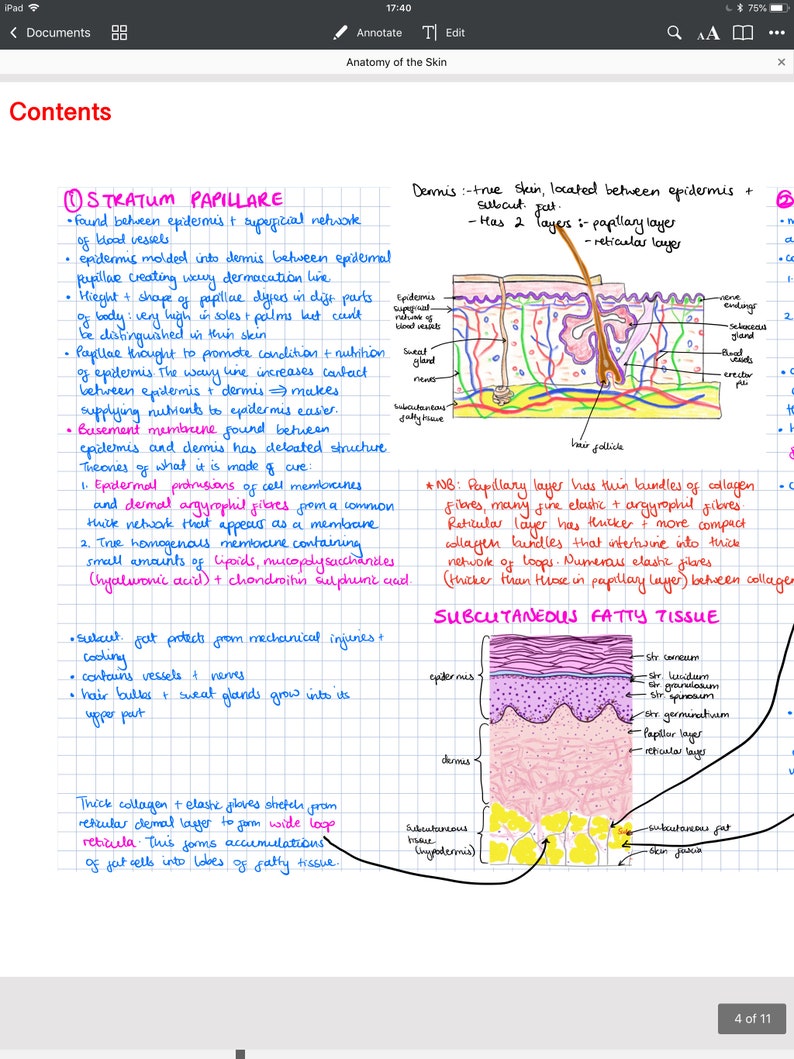 iPad
17:40
75%
Documents
Annotate
T Edit
AA
Anatomy of the Skin
Contents
① STRATUM PAPILLARE
• Found between epidermis + superficial network
of blood vessels
• epidermis molded into dermis between epidermal
papillae creating wavy dermacation line
• Hieght + shape of papillae differs in diff. parts
of body: very high in soles + palms but can't
be distinguished in thin skin
• Papillae thought to promote condition + nutrition
of epidermis. The wavy line increases contact
between epidermis + dermis ⇒ makes
supplying nutrients to epidermis easier.
• Basement membrane found between
epidermis and dermis has debated structure
Theories of what it is made of are:
1. Epidermal protrusions of cell membranes
and dermal argyrophil fibres from a common
thick network that appears as a membrane
2. True homogenous membrane containing
small amounts of lipoids, mucopolysaccharides
(hyaluronic acid) + chondroitin sulphuric acid.
Dermis :- true skin, located between epidermis +
subcut. fat.
- Has 2 layers :- papillary layer
- reticular layer
Epidermis
superficial
network of
blood vessels
Sweat
gland
nerves
Subcutaneous
fatty tissue
nerve
endings
Sebaceous
gland
Blood
vessels
erector
pili
hair follicle
* NB: Papillary layer has thin bundles of collagen
fibres, many fine elastic + argyrophil fibres.
Reticular layer has thicker + more compact
collagen bundles that intertwine into thick
network of loops. Numerous elastic fibres
(thicker than those in papillary layer) between collagen
SUBCUTANEOUS FATTY TISSUE
• subcut. fat protects from mechanical injuries +
cooling
• contains vessels + nerves
• hair bulbs + sweat glands grow into its
upper part
Thick collagen + elastic fibres stretch from
reticular dermal layer to form wide loop
reticula. This forms accumulations
of fat cells into lobes of fatty tissue.
epidermis
dermis
Subcutaneous
tissue
(hypodermis)
str. corneum
str. lucidum
str. granulosum
str. spinosum
str. germinativum
Papillar layer
reticular layer
subcutaneous fat
skin fascia
②
1.
2.
4 of 11